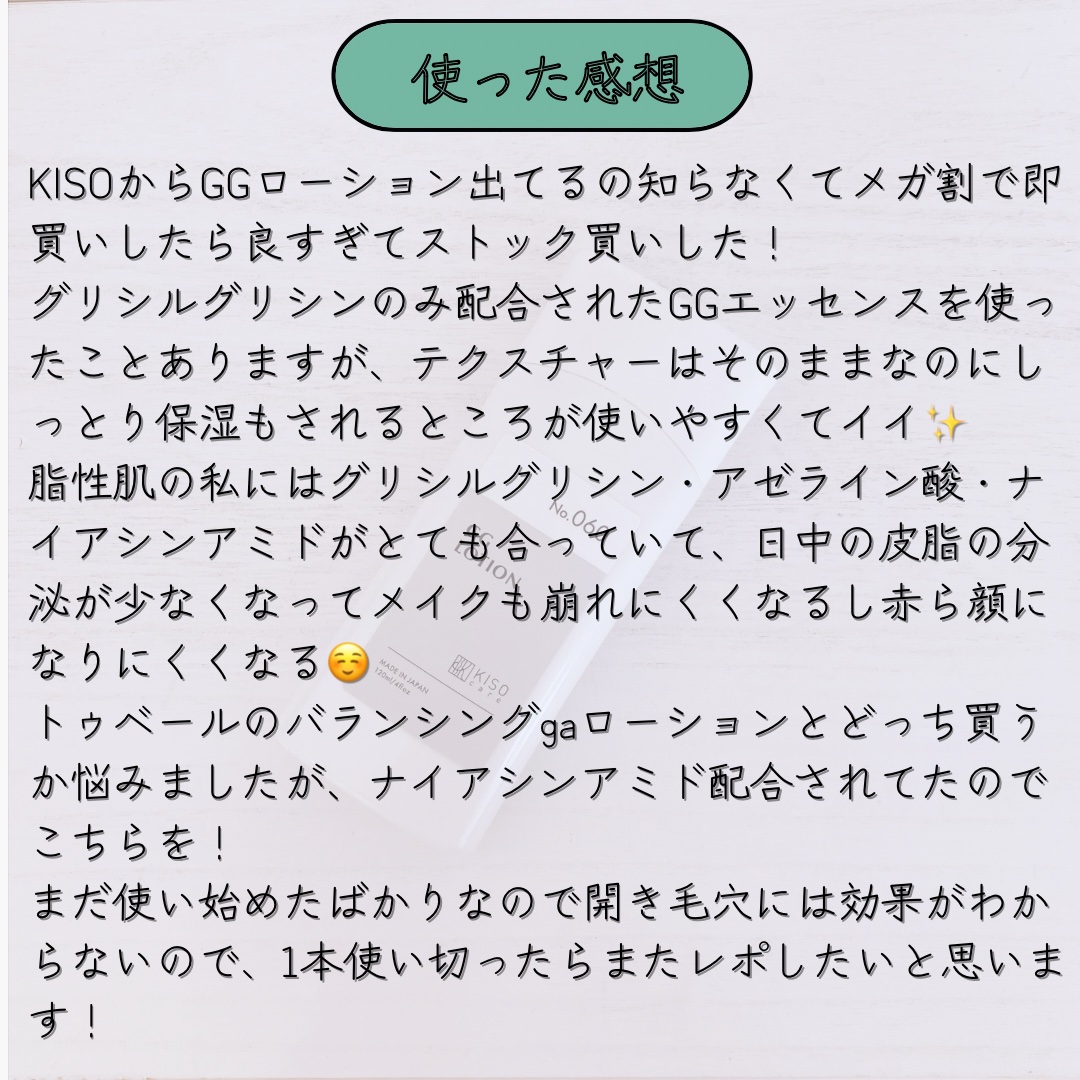 使った感想
KISOからGGローション出てるの知らなくてメガ割で即
買いしたら良すぎてストック買いした！
グリシルグリシンのみ配合されたGGエッセンスを使っ
たことありますが、テクスチャーはそのままなのにし
っとり保湿もされるところが使いやすくてイイ✨
脂性肌の私にはグリシルグリシン・アゼライン酸・ナ
イアシンアミドがとても合っていて、日中の皮脂の分
泌が少なくなってメイクも崩れにくくなるし赤ら顔に
なりにくくなる☺️
トゥベールのバランシングgaローションとどっち買う
か悩みましたが、ナイアシンアミド配合されてたので
こちらを！
まだ使い始めたばかりなので開き毛穴には効果がわか
らないので、1本使い切ったらまたレポしたいと思いま
す！
No.060
GG
LOTION
KISO
care
MADE IN JAPAN
120ml/4floz